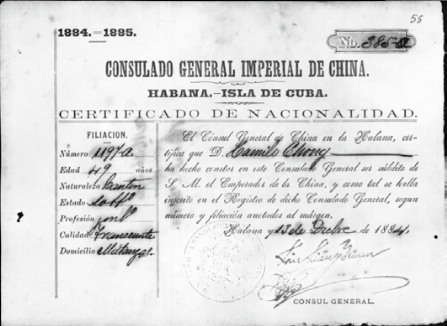 55
1884.—1885.
No.
CONSULADO GENERAL IMPERIAL DE CHINA.
HABANA.—ISLA DE CUBA.
CERTIFICADO DE NACIONALIDAD.
FILIACION.
Número 1197a
Edad 49 años
Naturaleza Canton
Estado Solto
Profesión
Calidad Transeunte
Domicilio Matanzas
El Cónsul General de China en la Habana, cer-
tifica que D. Camilo Chong
ha hecho constar en este Consulado General ser súbdito de
S. M. el Emperador de la China, y como tal se halla
inscrito en el Registro de dicho Consulado General, segun
número y filiación anotados al márgen.
Habana y 13 de Dicbre de 1884.
CONSUL GENERAL.